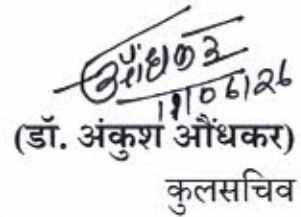 औंधकर
19/06/26
(डॉ. अंकुश औंधकर)
कुलसचिव